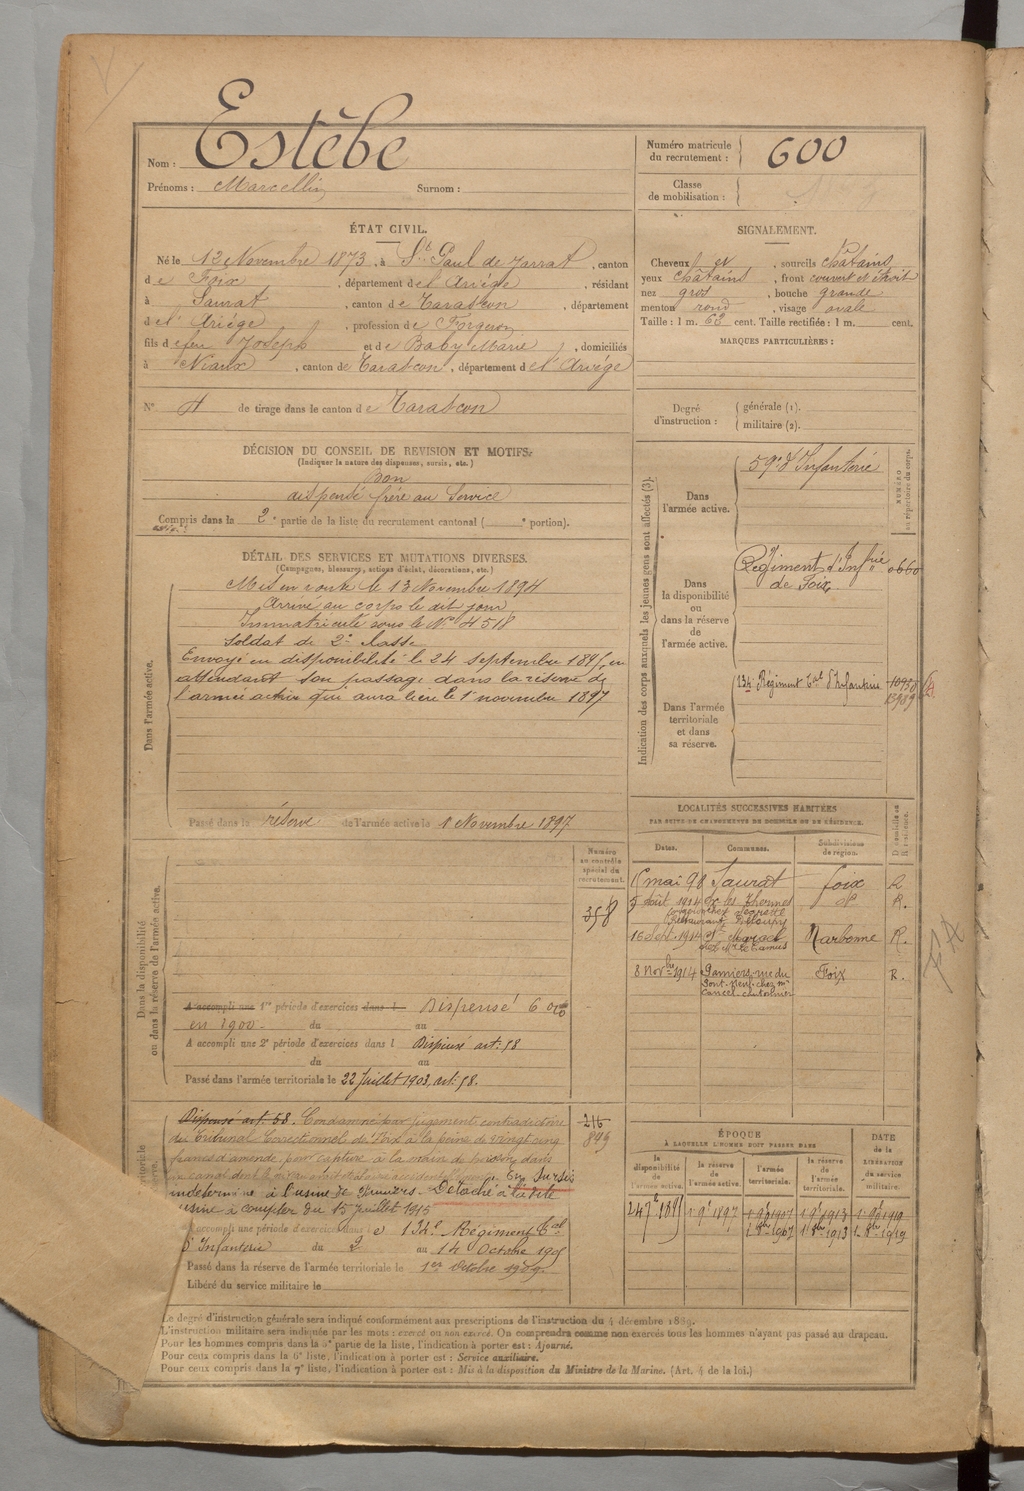 Nom : Estèbe
Prénoms : Marcellin Surnom :
Numéro matricule du recrutement : 600
Classe de mobilisation :
ÉTAT CIVIL.
Né le 12 Novembre 1873, à St Paul de Jarrat, canton
de Foix, département de l'Ariège, résidant
à Saurat, canton de Tarascon, département
de l'Ariège, profession de Forgeron
fils de feu Joseph et de Baby Marie, domiciliés
à Niaux, canton de Tarascon, département de l'Ariège
N° 4 de tirage dans le canton de Tarascon
SIGNALEMENT.
Cheveux et, sourcils châtains
yeux châtains, front couvert et étroit
nez gros, bouche grande
menton rond, visage ovale
Taille : 1 m. 62 cent. Taille rectifiée : 1 m. cent.
MARQUES PARTICULIÈRES :
Degré d'instruction : générale (1).
militaire (2).
DÉCISION DU CONSEIL DE REVISION ET MOTIFS.
(Indiquer la nature des dispenses, sursis, etc.)
Bon
dispensé frère au Service
Compris dans la 2e partie de la liste du recrutement cantonal ( e portion).
DÉTAIL DES SERVICES ET MUTATIONS DIVERSES.
(Campagnes, blessures, actions d'éclat, décorations, etc.)
Dans l'armée active.
Mis en route le 13 Novembre 1894
Arrivé au corps le dit jour
Immatriculé sous le N° 4518
Soldat de 2e classe
Envoyé en disponibilité le 24 septembre 1895, en
attendant son passage dans la réserve de
l'armée active qui aura lieu le 1er novembre 1897
Passé dans la réserve de l'armée active le 1 Novembre 1897
Indication des corps auxquels les jeunes gens sont affectés (3).
NUMÉRO au répertoire du corps.
Dans l'armée active.
59e d'Infanterie
Dans la disponibilité ou dans la réserve de l'armée active.
Régiment d'Infrie de Foix 0660
Dans l'armée territoriale et dans sa réserve.
134e Régiment tal d'Infanterie
LOCALITÉS SUCCESSIVES HABITÉES
PAR SUITE DE CHANGEMENTS DE DOMICILE OU DE RÉSIDENCE.
Dates. Communes. Subdivisions de région. D domicile ou R résidence.
6 mai 98 Saurat Foix R
5 août 1914 Ax les Thermes do R.
16 Sept. 1914 St Marcel Narbonne R.
8 Novbre 1914 Pamiers, rue du Foix R.
Pont-Neuf chez Mr
Dans la disponibilité ou dans la réserve de l'armée active.
Numéro au contrôle spécial du recrutement.
358
A accompli une 1re période d'exercices dans l Dispensé
en 1900. du au
A accompli une 2e période d'exercices dans l Dispensé art: 58
du au
Passé dans l'armée territoriale le 22 Juillet 1903, art: 58.
Dispensé art. 58. Condamné par jugement contradictoire
du Tribunal Correctionnel de Foix à la peine de vingt cinq
francs d'amende pour capture à la main de poissons dans
En sursis
indéterminé à l'usine de Pamiers. Détaché à la dite
usine à compter du 15 juillet 1915
216
895
A accompli une période d'exercices dans le 134e Régiment tal
d'Infanterie du 2 au 14 Octobre 1905
Passé dans la réserve de l'armée territoriale le 1er Octobre 1909.
Libéré du service militaire le
ÉPOQUE
À LAQUELLE L'HOMME DOIT PASSER DANS
la disponibilité de l'armée active. la réserve de l'armée active. l'armée territoriale. la réserve de l'armée territoriale.
DATE de la LIBÉRATION du service militaire.
24 7bre 1895 1er 9bre 1897 1er 9bre 1907 1er 9bre 1913 1er 9bre 1919
1 8bre 1907 1 8bre 1913 1 8bre 1919
Le degré d'instruction générale sera indiqué conformément aux prescriptions de l'instruction du 4 décembre 1889.
L'instruction militaire sera indiquée par les mots : exercé ou non exercé. On comprendra comme non exercés tous les hommes n'ayant pas passé au drapeau.
Pour les hommes compris dans la 5e partie de la liste, l'indication à porter est : Ajourné.
Pour ceux compris dans la 6e liste, l'indication à porter est : Service auxiliaire.
Pour ceux compris dans la 7e liste, l'indication à porter est : Mis à la disposition du Ministre de la Marine. (Art. 4 de la loi.)